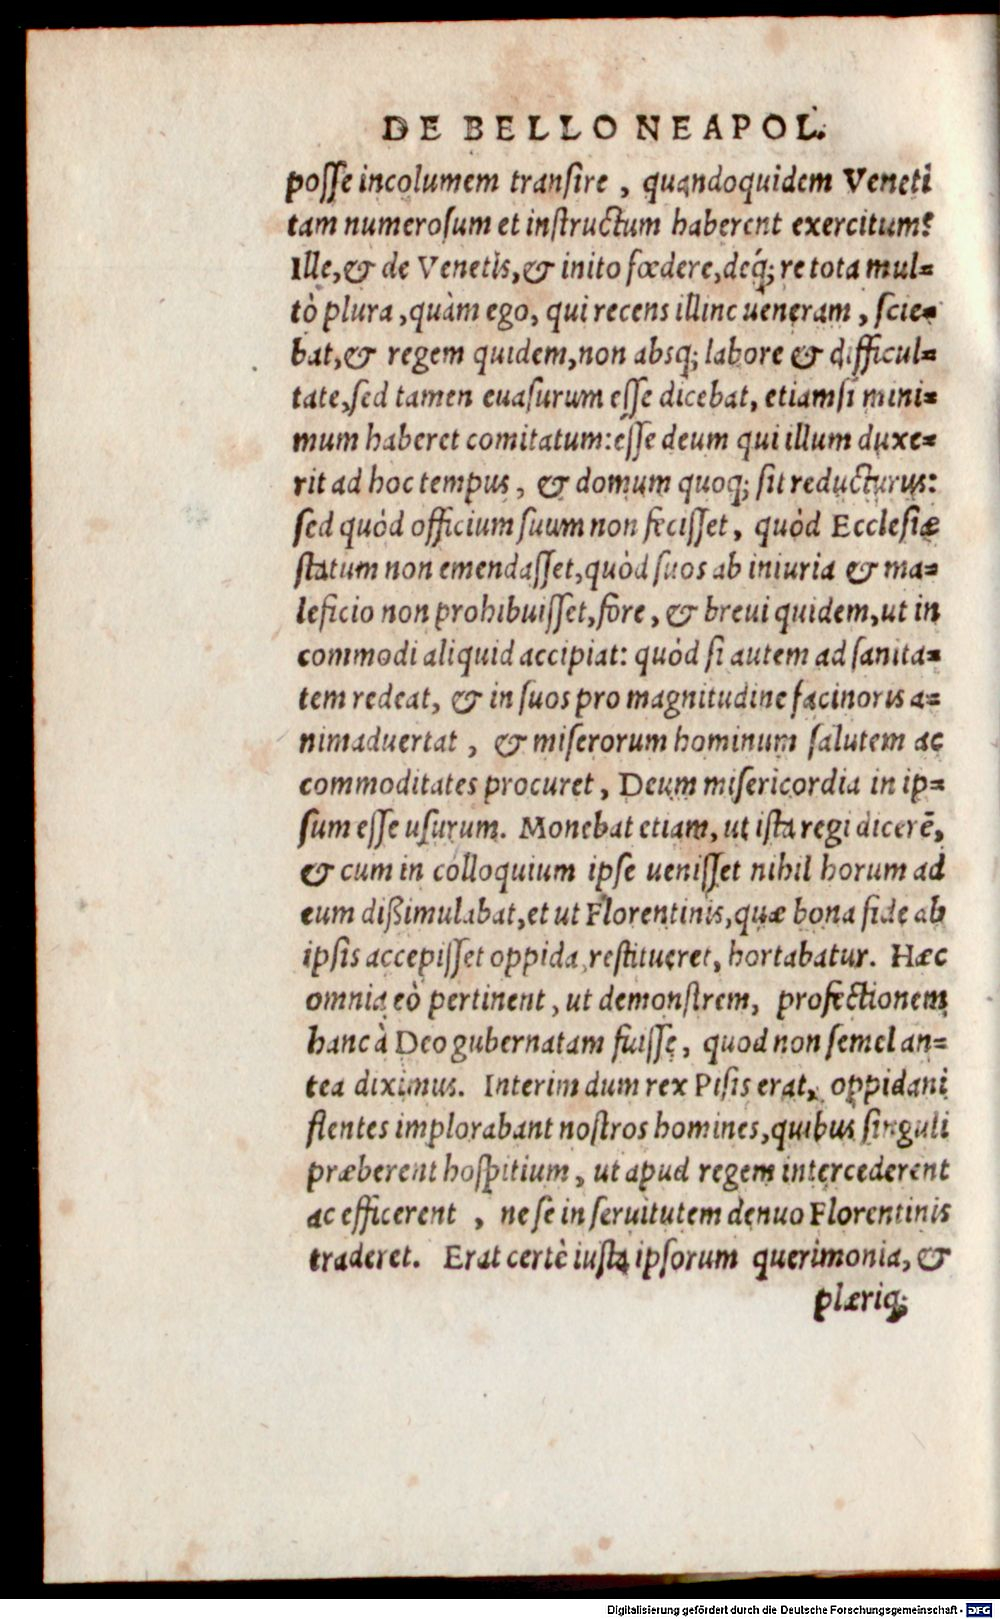 DE BELLO NEAPOL.
posse incolumem transire, quandoquidem Veneti
tam numerosum et instructum haberent exercitum?
Ille, & de Venetis, & inito fœdere, deq́; re tota mul=
tò plura, quàm ego, qui recens illinc ueneram, scie=
bat, & regem quidem, non absq; labore & difficul=
tate, sed tamen euasurum esse dicebat, etiamsi mini=
mum haberet comitatum: esse deum qui illum duxe=
rit ad hoc tempus, & domum quoq; sit reducturus:
sed quòd officium suum non fecisset, quòd Ecclesiæ
statum non emendasset, quòd suos ab iniuria & ma=
leficio non prohibuisset, fore, & breui quidem, ut in
commodi aliquid accipiat: quòd si autem ad sanita=
tem redeat, & in suos pro magnitudine facinoris a=
nimaduertat, & miserorum hominum salutem ac
commoditates procuret, Deum misericordia in ip=
sum esse usurum. Monebat etiam, ut ista regi dicerē,
& cum in colloquium ipse uenisset nihil horum ad
eum dißimulabat, et ut Florentinis, quæ bona fide ab
ipsis accepisset oppida, restitueret, hortabatur. Hæc
omnia eò pertinent, ut demonstrem, profectionem
hanc à Deo gubernatam fuisse, quod non semel an=
tea diximus. Interim dum rex Pisis erat, oppidani
flentes implorabant nostros homines, quibus singuli
præberent hospitium, ut apud regem intercederent
ac efficerent, ne se in seruitutem denuo Florentinis
traderet. Erat certè iusta ipsorum querimonia, &
plæriq;
Digitalisierung gefördert durch die Deutsche Forschungsgemeinschaft - DFG